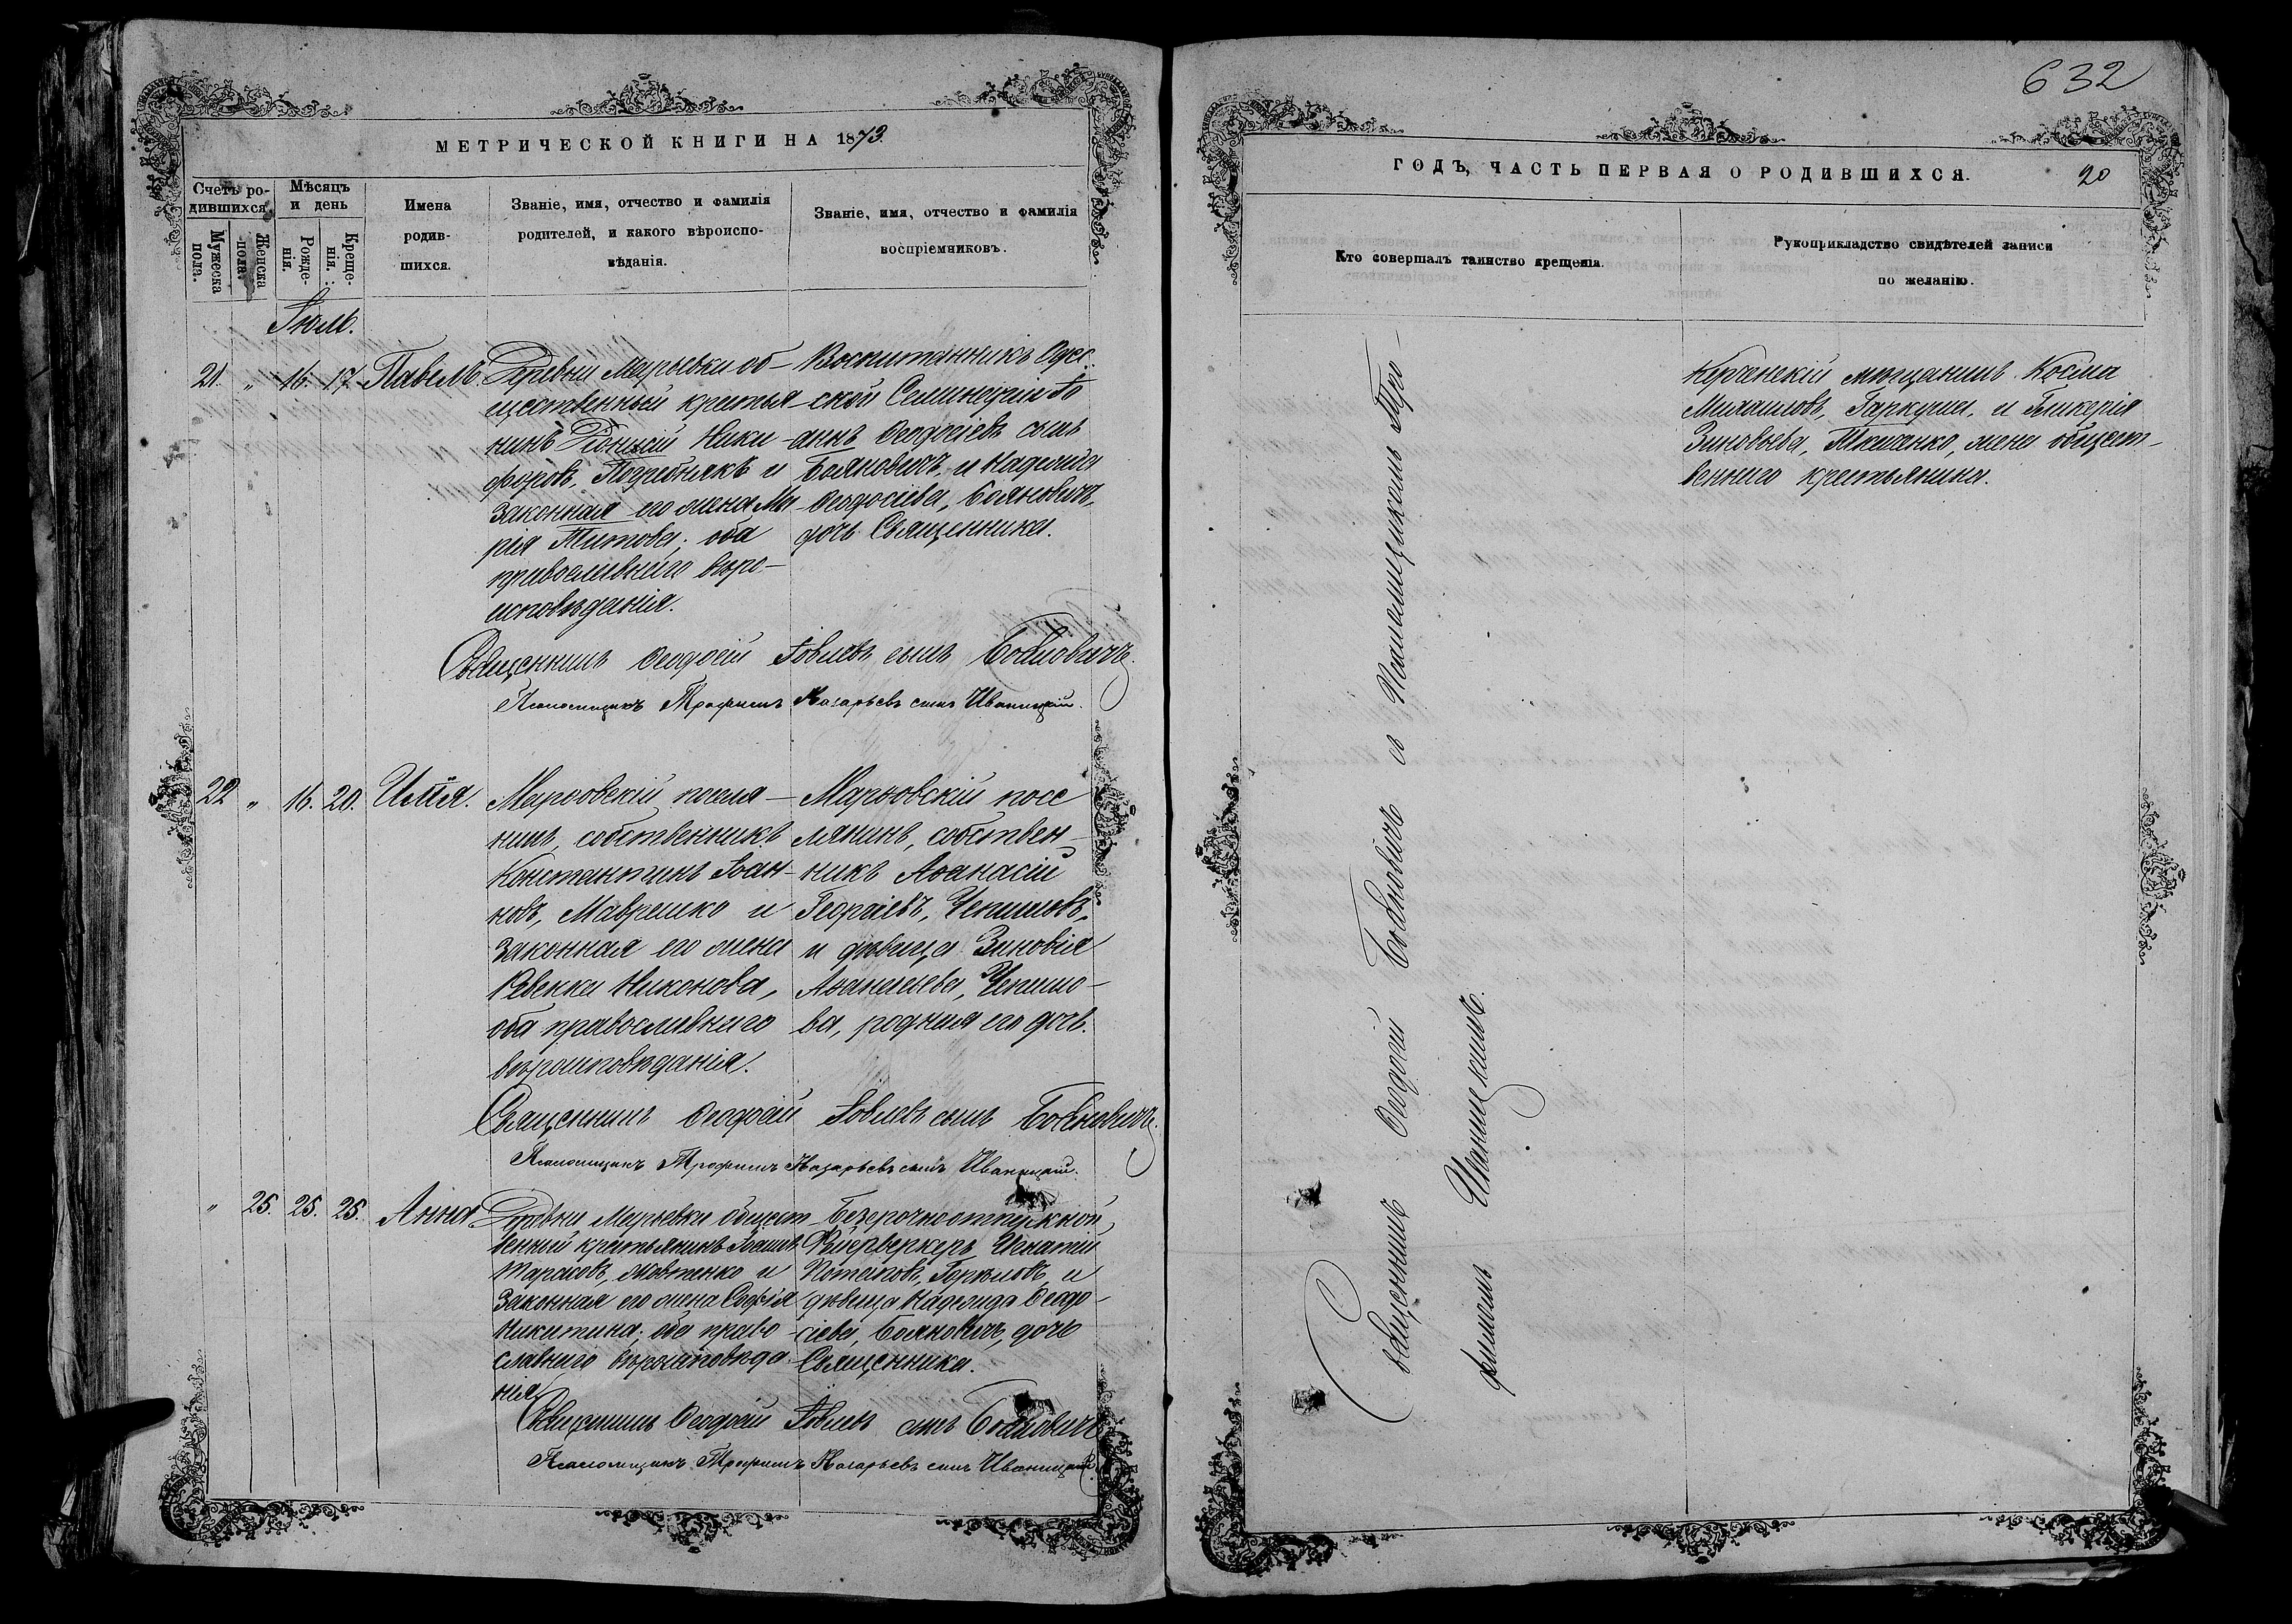 МЕТРИЧЕСКОЙ КНИГИ НА 1873.
Счетъ ро-
дившихся.
Мужеска
пола.
Женска
пола.
Мѣсяцъ
и день
Рожде-
нія.
Креще-
нія.
Имена
родив-
шихся.
Званіе, имя, отчество и фамилія
родителей, и какого вѣроиспо-
вѣданія.
Званіе, имя, отчество и фамилія
воспріемниковъ.
Іюль.
21. " 16. 17. Павелъ.
Деревни Марьевки об-
щественный крестья-
нинъ Ники-
форовъ, и
законная его жена Ма
рія Титова; оба
православнаго вѣро-
исповѣданія.
Воспитанникъ Одес-
ской Семинаріи Іо
аннъ Ѳеодосіевъ сынъ
Бояновичъ, и Надежда
Ѳеодосіева, Бояновичъ,
дочь Священника.
Священникъ Ѳеодосій Іовлевъ сынъ Бояновичъ.
Псаломщикъ Трофимъ Назарьевъ сынъ Иваницкій.
22 " 16. 20. Илія.
Марѳовскій поселя-
нинъ, собственникъ
Константинъ Іоан-
новъ, Маврешко и
законная его жена
Ревекка Никонова,
оба православнаго
вѣроисповѣданія.
Марѳовскій посе
лянинъ, собствен-
никъ Аѳанасій
Георгіевъ, Чепишовъ,
и дѣвица Зиновія
Аѳанасьева, Чепишо-
ва, родная его дочь.
Священникъ Ѳеодосій Іовлевъ сынъ Бояновичъ.
Псаломщикъ Трофимъ Назарьевъ сынъ Иваницкій.
" 25. 25. 25. Анна
Деревни Марьевки общест
венный крестьянинъ Іоаннъ
Тарасовъ, Жовтенко и
законная его жена Софія
Никитина; оба право-
славнаго вѣроисповѣда
нія.
Безсрочноотпускной
Фейерверкеръ Игнатій
Потаповъ, Горѣловъ, и
дѣвица Надежда Ѳеодо-
сіева, Бояновичъ, дочь
Священника.
Священникъ Ѳеодосій Іовлевъ сынъ Бояновичъ
Псаломщикъ Трофимъ Назарьевъ сынъ Иваницкій.
632
ГОДЪ, ЧАСТЬ ПЕРВАЯ О РОДИВШИХСЯ.
20
Кто совершалъ таинство крещенія.
Рукоприкладство свидѣтелей записи
по желанію.
Священникъ Ѳеодосій Бояновичъ съ Псаломщикомъ Тро-
фимомъ Иваницкимъ.
Керченскій мѣщанинъ Косма
Михаиловъ, Гаркуша, и Гликерія
Зиновьева, Ткаченко, жена общест-
веннаго крестьянина.